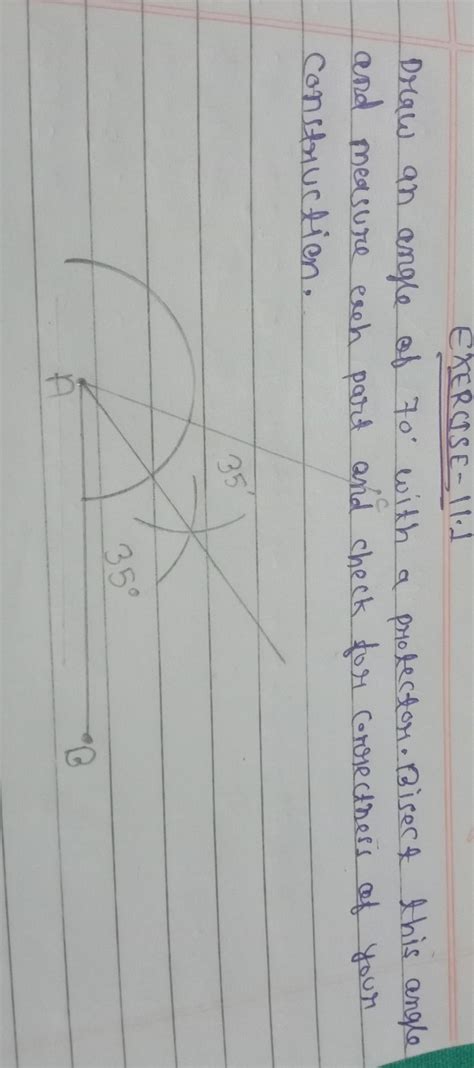 EXERCISE-11.1
Draw an angle of 70° with a protector. Bisect this angle
and measure each part and check for correctness of your
construction.
C
35°
35°
A
B